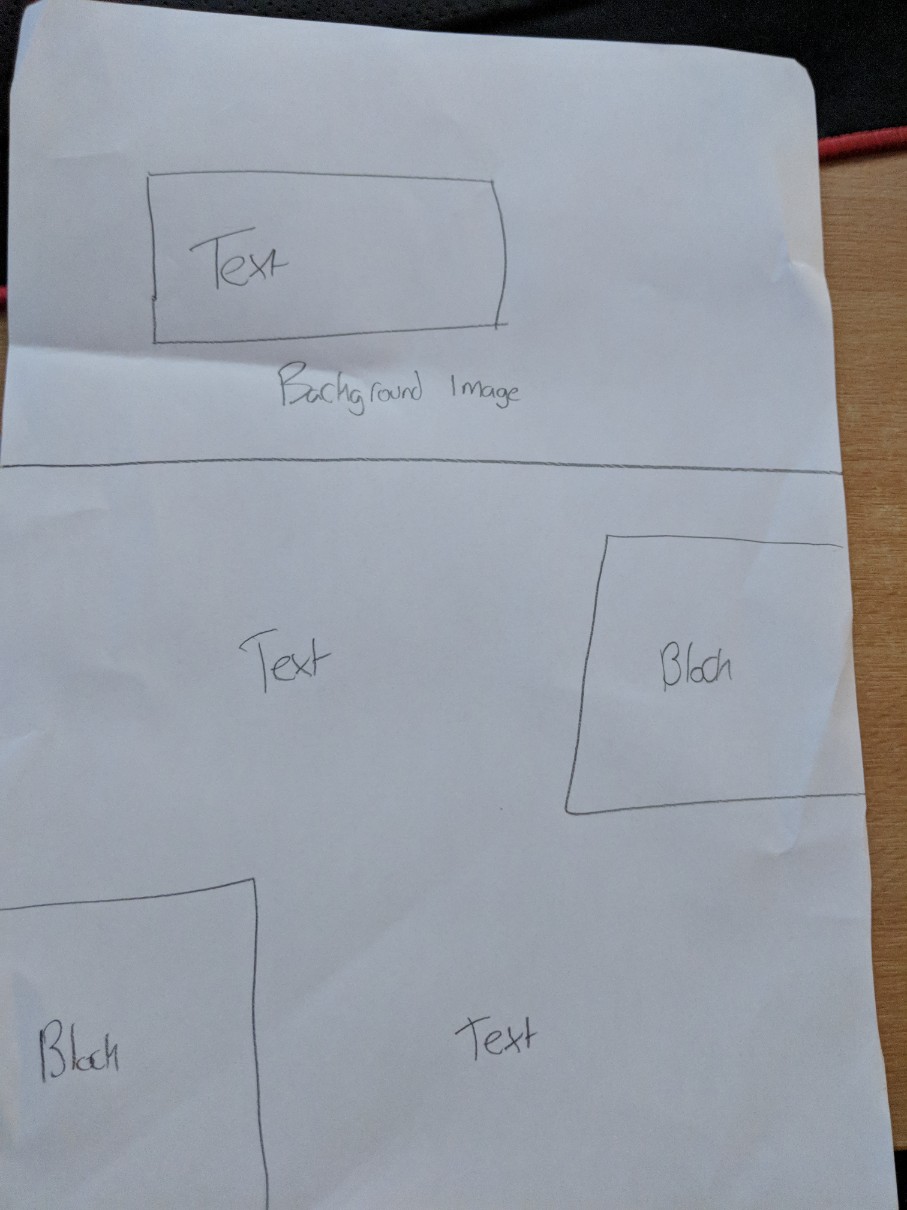 Text
Background Image
Text
Block
Block
Text